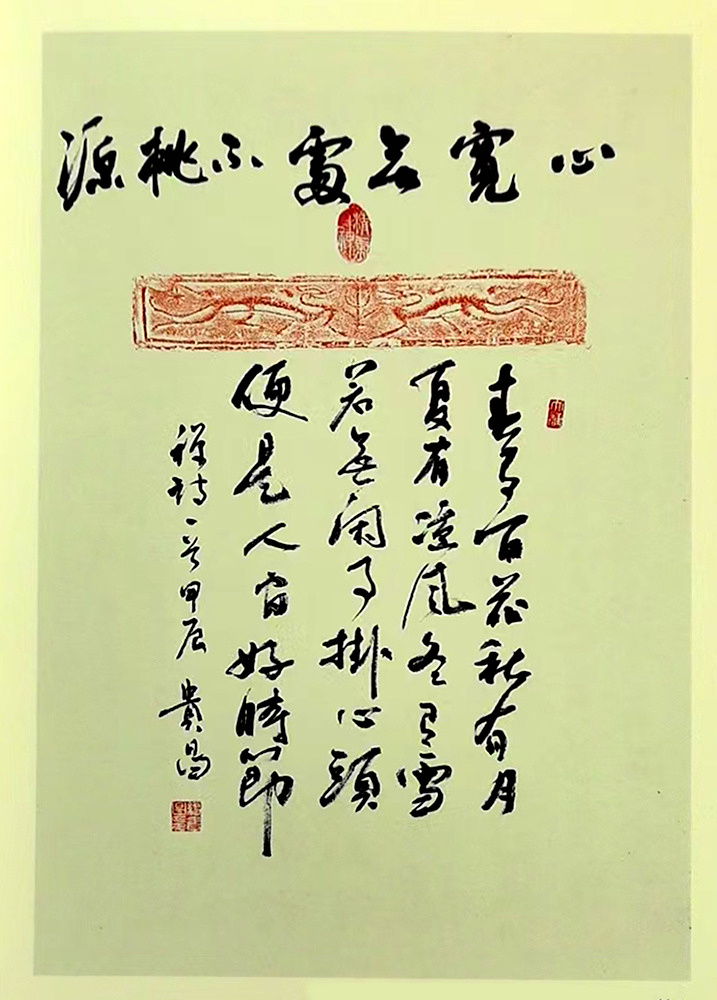 心寬無處不桃源
春有百花秋有月
夏有涼風冬有雪
若無閑事掛心頭
便是人間好時節
禪詩一首甲辰 貴昌